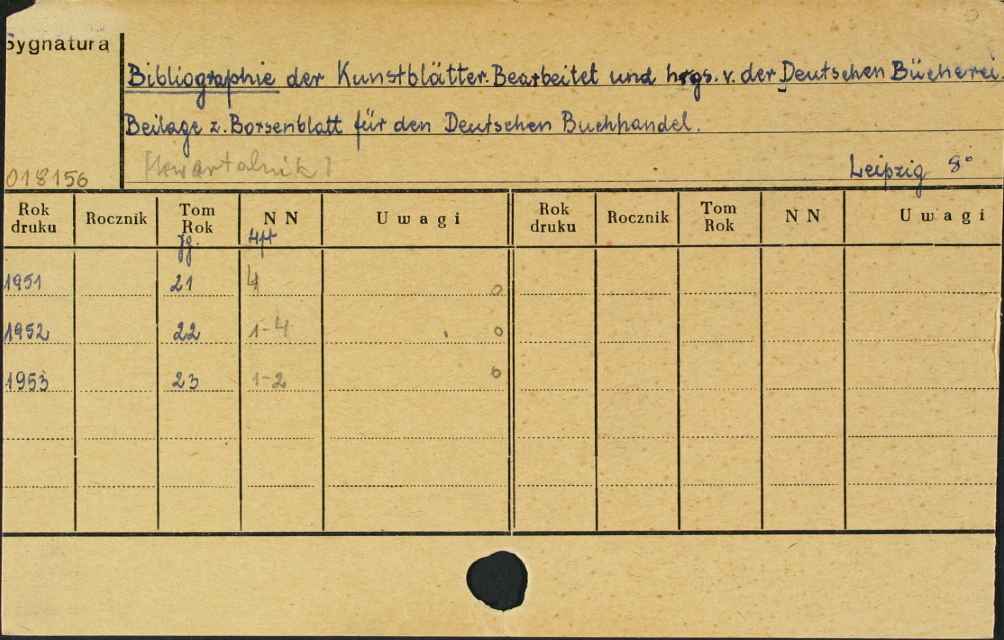 Sygnatura
Bibliographie der Kunstblätter. Bearbeitet und hrgs. v. der Deutschen Bücherei.
Beilage z. Börsenblatt für den Deutschen Buchhandel.
[Kwartalnik]
018156
Leipzig 8°
Rok druku Rocznik Tom Rok N N Uwagi Rok druku Rocznik Tom Rok N N Uwagi
Jg. Hft
1951 21 4 0
1952 22 1-4 0
1953 23 1-2 0